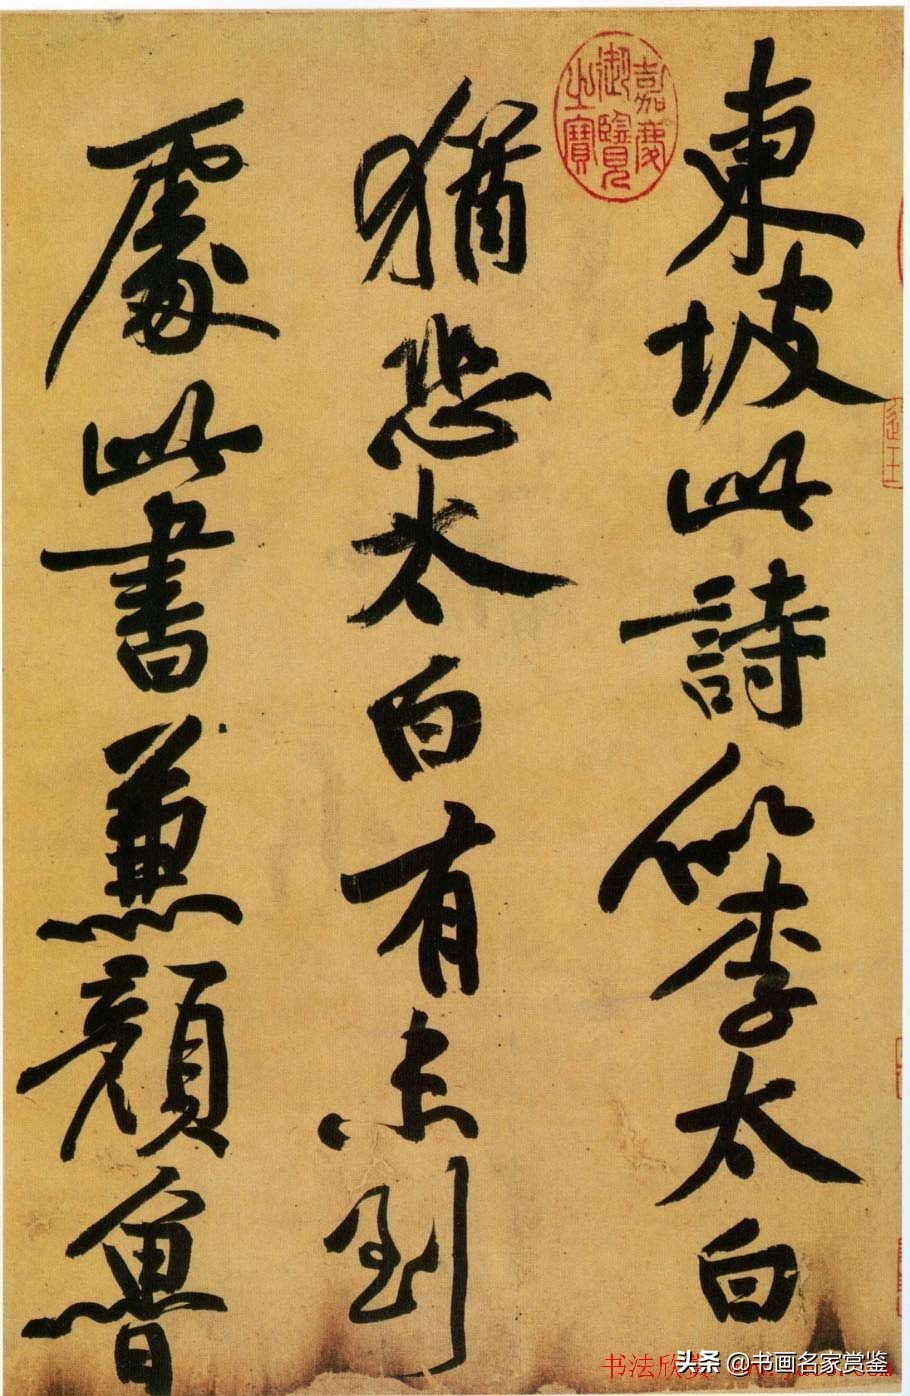 東坡此詩似李太白
猶恐太白有未到
處此書兼顏魯
嘉慶御覽之寶
书法欣赏
头条 @书画名家赏鉴